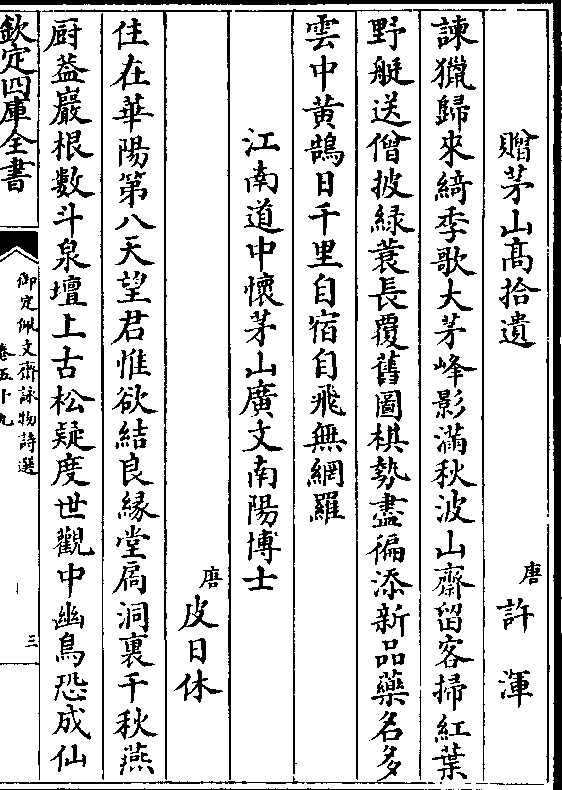 贈茅山髙拾遺
唐許渾
諫獵歸來綺季歌大茅峰影滿秋波山齋留客掃紅葉
野艇送僧披綠蓑長覆舊圖棋勢盡徧添新品藥名多
雲中黄鵠日千里自宿自飛無網羅
江南道中懷茅山廣文南陽博士
唐皮日休
住在華陽第八天望君惟欲結良縁堂扃洞裏千秋燕
厨葢巖根數斗泉壇上古松疑度世觀中幽鳥恐成仙
欽定四庫全書
御定佩文齋詠物詩選
卷五十九
三